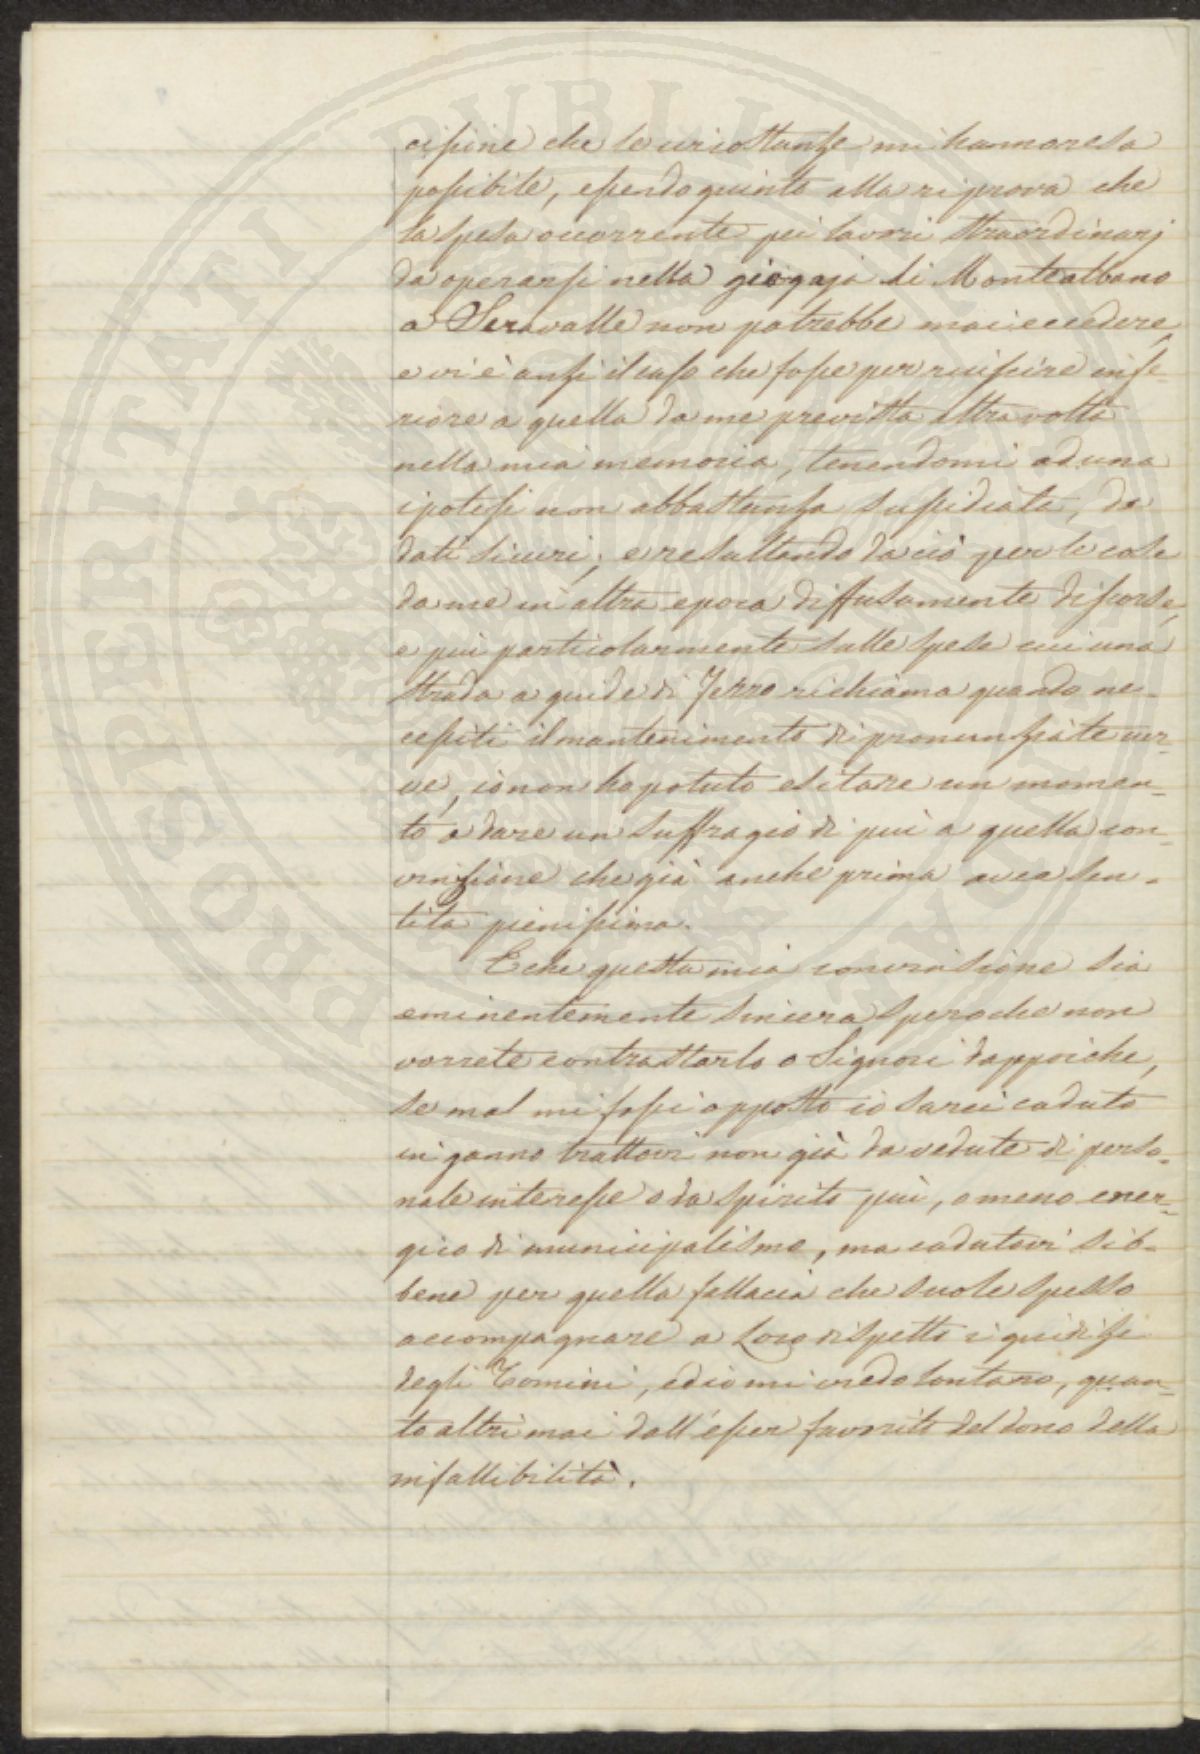 cisine che le circostanze mi hanno resa
possibile, essendo giunto alla riprova che
la spesa occorrente pei lavori straordinarj
da operarsi nella giogaja di Montealbano
a Seravalle non potrebbe mai eccedere,
e vi è anzi il caso che fosse per riuscire infe-
riore a quella da me prevista altra volta
nella mia memoria, tenendomi ad una
ipotesi non abbastanza sussidiata, da
dati sicuri, e resultando da ciò per le cose
da me in altra epoca diffusamente discorse,
e più particolarmente sulle spese cui una
strada a guide di Ferro richiama quando ne-
cessiti il mantenimento di pronunziate cur-
ve, io non ho potuto esitare un momen-
to a dare un suffragio di più a quella con-
vinzione che già anche prima avea sen-
tita pienissima.
E che questa mia convinsione sia
eminentemente sincera spero che non
vorrete contrastarlo o Signori dappoiche,
se mal mi fossi apposto io sarei caduto
in ganno trattovi non già da vedute di perso-
nale interesse o da spirito più, o meno ener-
gico di municipalismo, ma cadutovi sib-
bene per quella fallacia che suole spesso
accompagnare a Loro dispetto i guidizi
degli Uomini, ed io mi credo lontano, quan-
to altri mai dall'esser favorito del dono della
infallibilità.
PROSPERITATI PUBLICAE